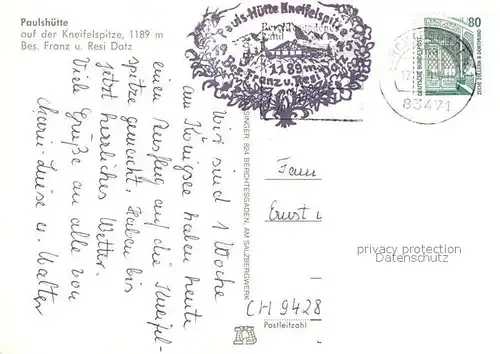 Paulshütte
auf der Kneifelspitze, 1189 m
Bes. Franz u. Resi Datz
Wir sind 1 Woche
am Königsee haben heute
einen Ausflug auf die Kneifel-
spitze gemacht. Haben bis
jetzt herrliches Wetter.
Viele Grüße an alle von
Marie-Luise u. Walter
Pauls-Hütte Kneifelspitze
1189 m
Bes. Franz u. Resi
80
DEUTSCHE BUNDESPOST
ZECHE ZOLLERN II DORTMUND
83471
824 BERCHTESGADEN, AM SALZBERGWERK
Fam
Ernst
CH 9428
Postleitzahl
privacy protection
Datenschutz